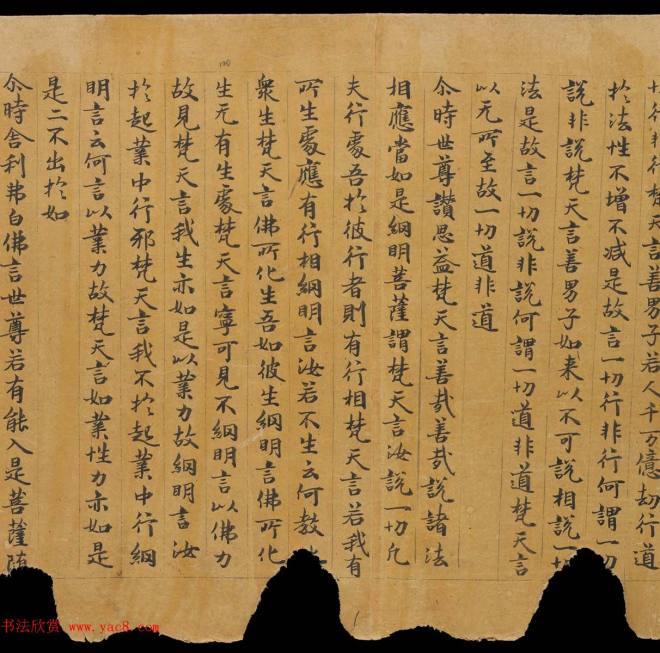 行非行梵天言善男子若人千万億劫行道
扵法性不增不減是故言一切行非行何謂一切
說非說梵天言善男子如来以不可說相說一切
法是故言一切說非說何謂一切道非道梵天言
以无所至故一切道非道
尒時世尊讚思益梵天言善㢤善㢤說諸法
相應當如是綱明菩薩謂梵天言汝說一切凢
夫行處吾扵彼行者則有行相梵天言若我有
所生處應有行相綱明言汝若不生云何教
衆生梵天言佛所化生吾如彼生綱明言佛所化
生无有生處梵天言寧可見不綱明言以佛力
故見梵天言我生亦如是以業力故綱明言汝
扵起業中行邪梵天言我不扵起業中行綱
明言云何言以業力故梵天言如業性力亦如是
是二不出扵如
尒時舍利弗白佛言世尊若有能入是菩薩随
书法欣赏 www.yac8.com